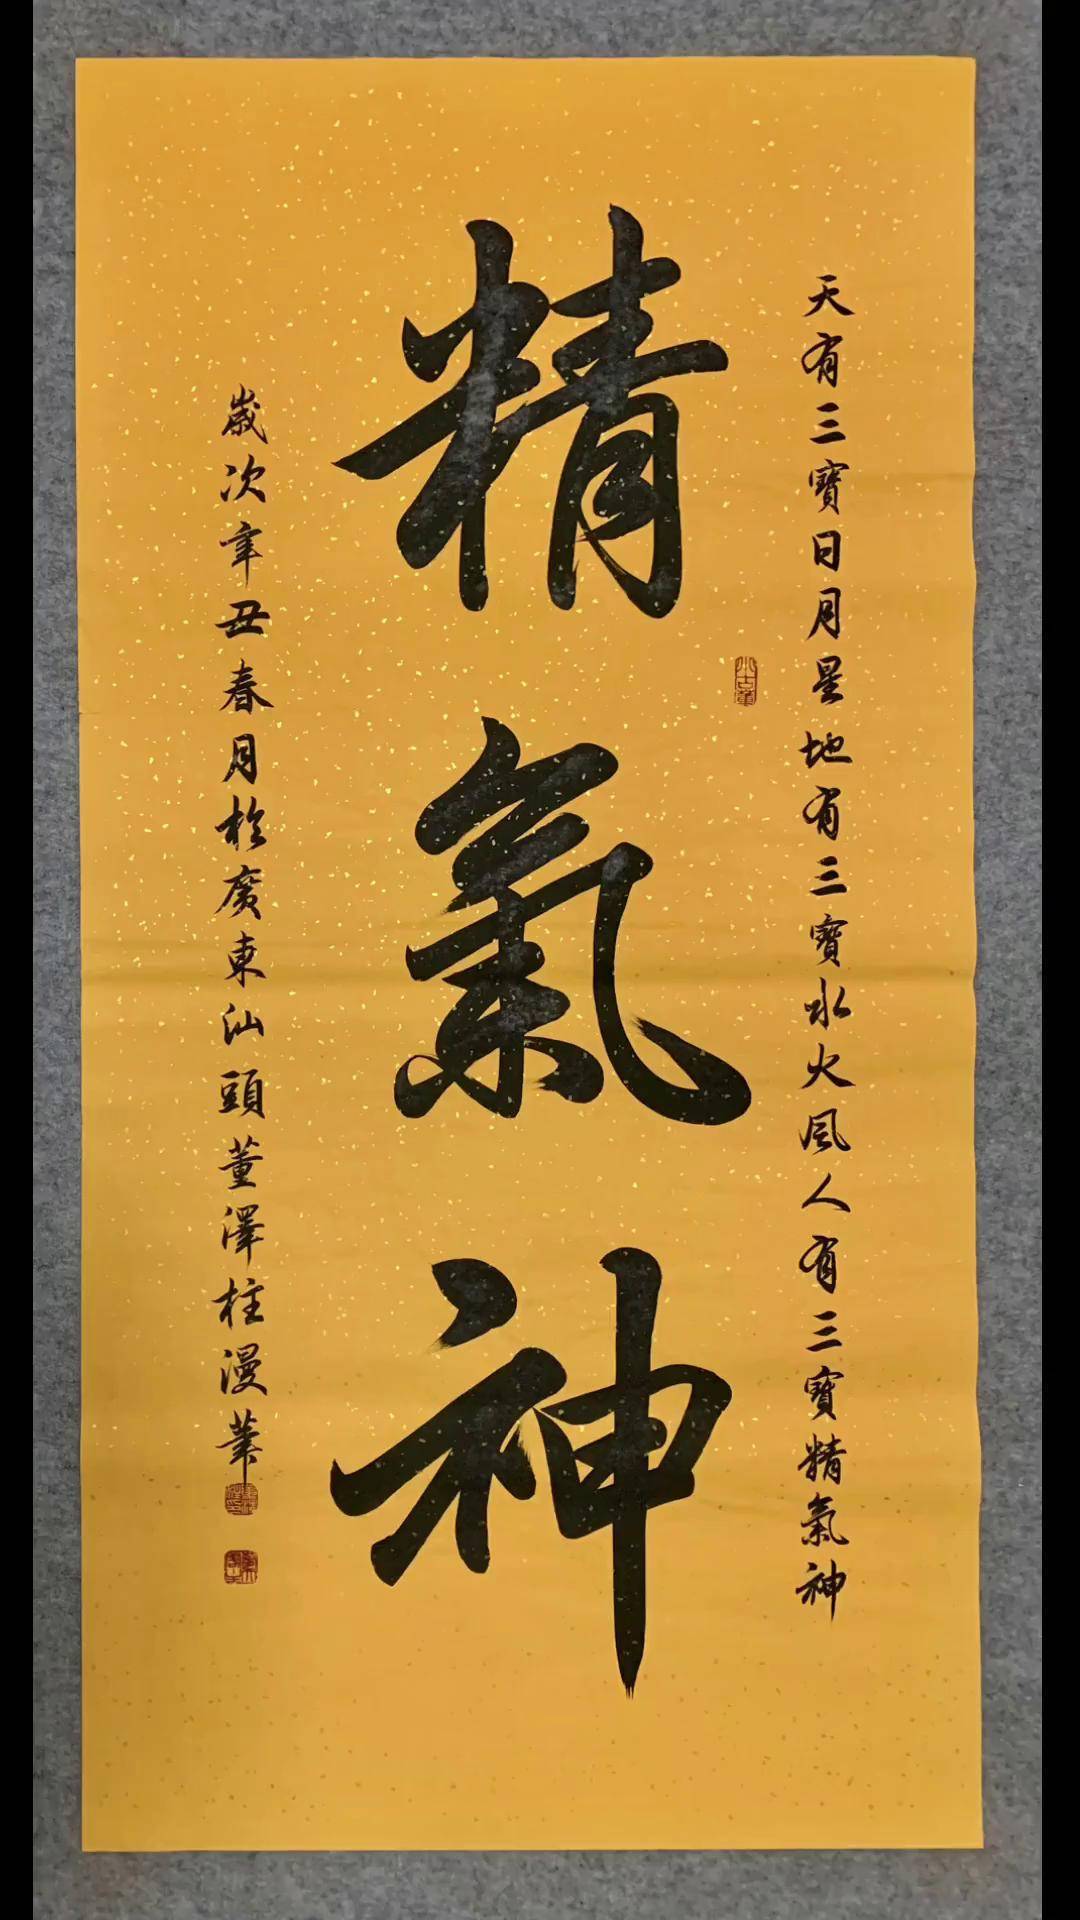 天有三寶日月星地有三寶水火風人有三寶精氣神
精氣神
歲次辛丑春月於廣東汕頭董澤柱漫筆